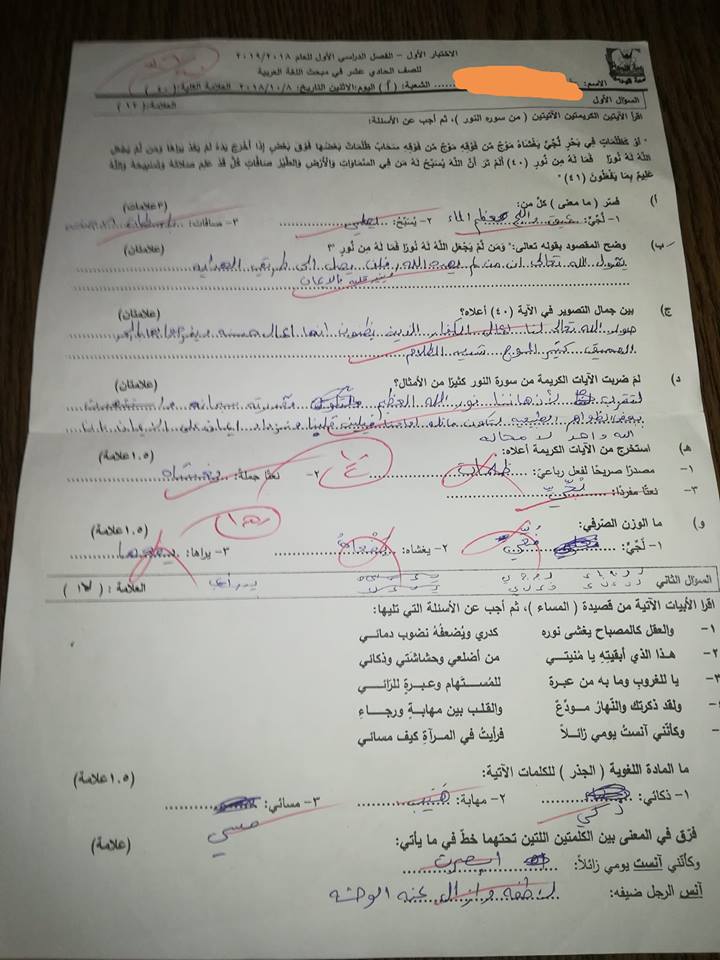 الاختبار الأول - الفصل الدراسي الأول للعام ٢٠١٩/٢٠١٨
للصف الحادي عشر في مبحث اللغة العربية
الاسم: الشعبة: ( أ ) اليوم:الاثنين التاريخ: ٢٠١٨/١٠/٨ العلامة الكلية: (٤٠)
السؤال الأول العلامة: (١٢)
اقرأ الآيتين الكريمتين الآتيتين ( من سورة النور ) ، ثم أجب عن الأسئلة:
" أَوْ كَظُلُمَاتٍ فِي بَحْرٍ لُجِّيٍّ يَغْشَاهُ مَوْجٌ مِّن فَوْقِهِ مَوْجٌ مِّن فَوْقِهِ سَحَابٌ ظُلُمَاتٌ بَعْضُهَا فَوْقَ بَعْضٍ إِذَا أَخْرَجَ يَدَهُ لَمْ يَكَدْ يَرَاهَا وَمَن لَّمْ يَجْعَلِ
اللَّهُ لَهُ نُورًا فَمَا لَهُ مِن نُّورٍ (٤٠) أَلَمْ تَرَ أَنَّ اللَّهَ يُسَبِّحُ لَهُ مَن فِي السَّمَاوَاتِ وَالْأَرْضِ وَالطَّيْرُ صَافَّاتٍ كُلٌّ قَدْ عَلِمَ صَلَاتَهُ وَتَسْبِيحَهُ وَاللَّهُ
عَلِيمٌ بِمَا يَفْعَلُونَ (٤١) "
أ) فسّر ( ما معنى ) كلّ من: (٣علامات)
١- لُجِّيّ: عميق معظم الماء ٢- يُسَبّحُ: يصلي ٣- صافات:
ب) وضح المقصود بقوله تعالى: " وَمَن لَّمْ يَجْعَلِ اللَّهُ لَهُ نُورًا فَمَا لَهُ مِن نُّورٍ " (علامتان)
يقول الله تعالى ان من لم يهده الله فلن يصل الى طريق الهدايه
ج) بين جمال التصوير في الآية (٤٠) أعلاه؟ (علامتان)
صور الله تعالى لنا اعمال الكفار الذين يظنون انها اعمال حسنه
العميق كثير الموج شديد الظلام
د) لمَ ضربت الآيات الكريمة من سورة النور كثيرًا من الأمثال؟ (علامتان)
لتقرب لأذهاننا نور الله العظيم
الله واحد لا محاله
هـ) استخرج من الآيات الكريمة أعلاه: (١.٥علامة)
١- مصدرًا صريحًا لفعل رباعيّ: ظلمات ٢- نعتًا جملة: يغشاه
٣- نعتًا مفردًا: لُجّيّ
و) ما الوزن الصّرفي: (١.٥علامة)
١- لُجّيّ: ٢- يغشاه: ٣- يراها:
السؤال الثاني العلامة: (١٧)
اقرأ الأبيات الآتية من قصيدة ( المساء ) ، ثم أجب عن الأسئلة التي تليها:
١- والعقل كالمصباح يغشى نوره كدري ويُضعفُهُ نضوب دمائي
٢- هذا الذي أبقيتِهِ يا مُنيتي من أضلعي وحشاشتي وذكائي
٣- يا للغروبِ وما به من عبرة للمُستهام وعبرةٍ للرّائي
ولقد ذكرتك والنّهارُ مودّعٌ والقلب بين مهابةٍ ورجاءِ
وكأنّني آنستُ يومي زائلاً فرأيتُ في المرآةِ كيف مسائي
ما المادة اللغوية ( الجذر ) للكلمات الآتية: (١.٥علامة)
١- ذكائي: ذكي ٢- مهابة: هيب ٣- مسائي: مسي
فرّق في المعنى بين الكلمتين اللتين تحتهما خطّ في ما يأتي: (علامة)
وكأنّني آنست يومي زائلاً: أبصرت
آنس الرجل ضيفه: لاطفه وازال عنه الوحشه